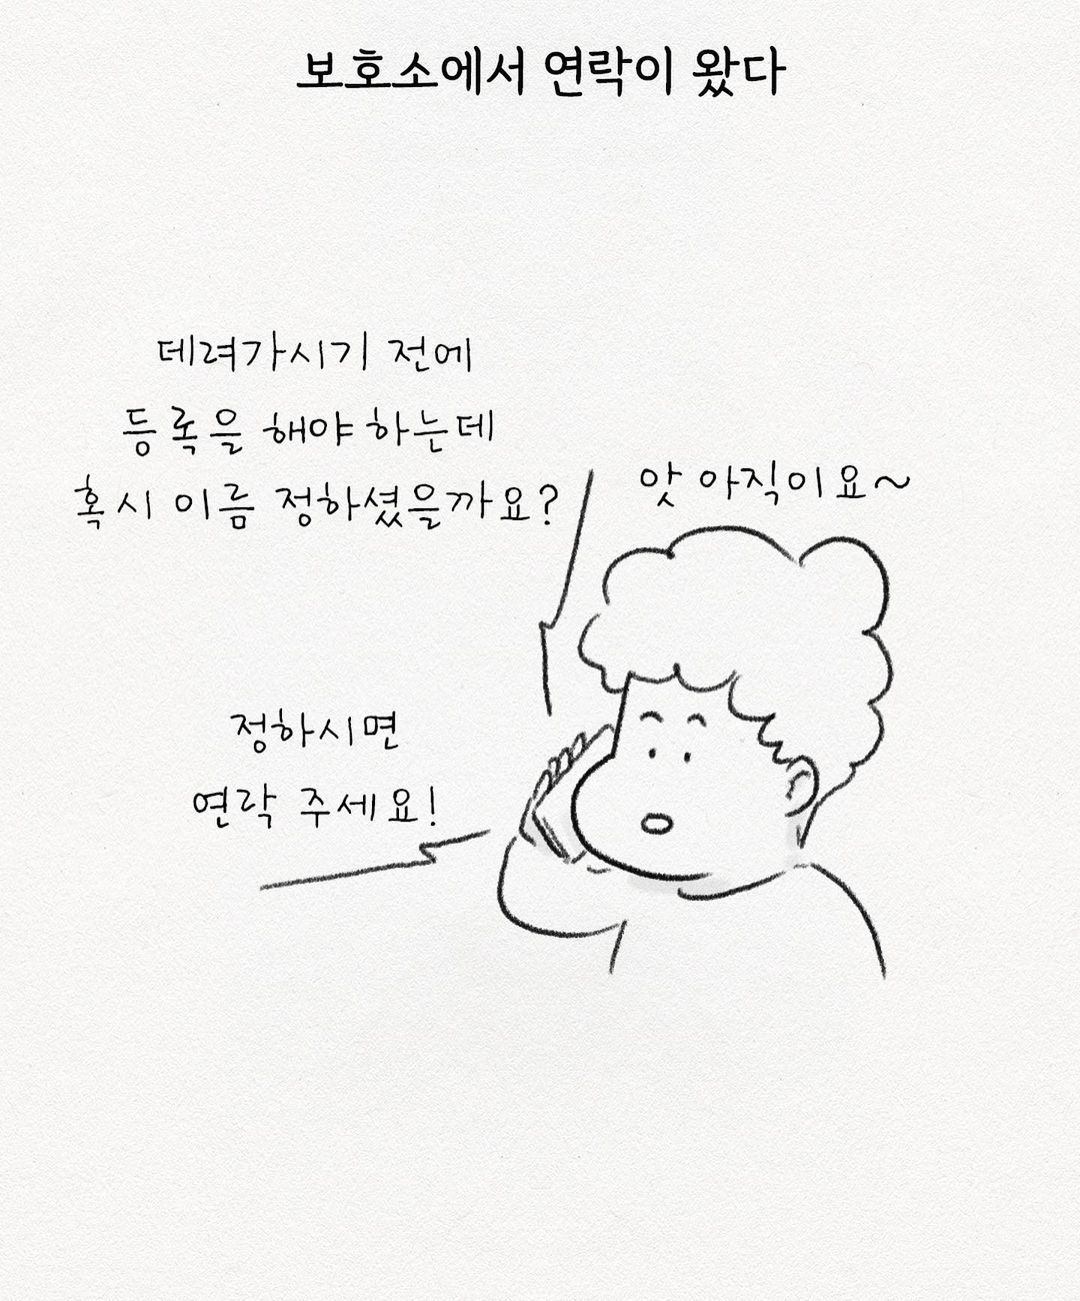 보호소에서 연락이 왔다
데려가시기 전에
등록을 해야 하는데
혹시 이름 정하셨을까요?
앗 아직이요~
정하시면
연락 주세요!